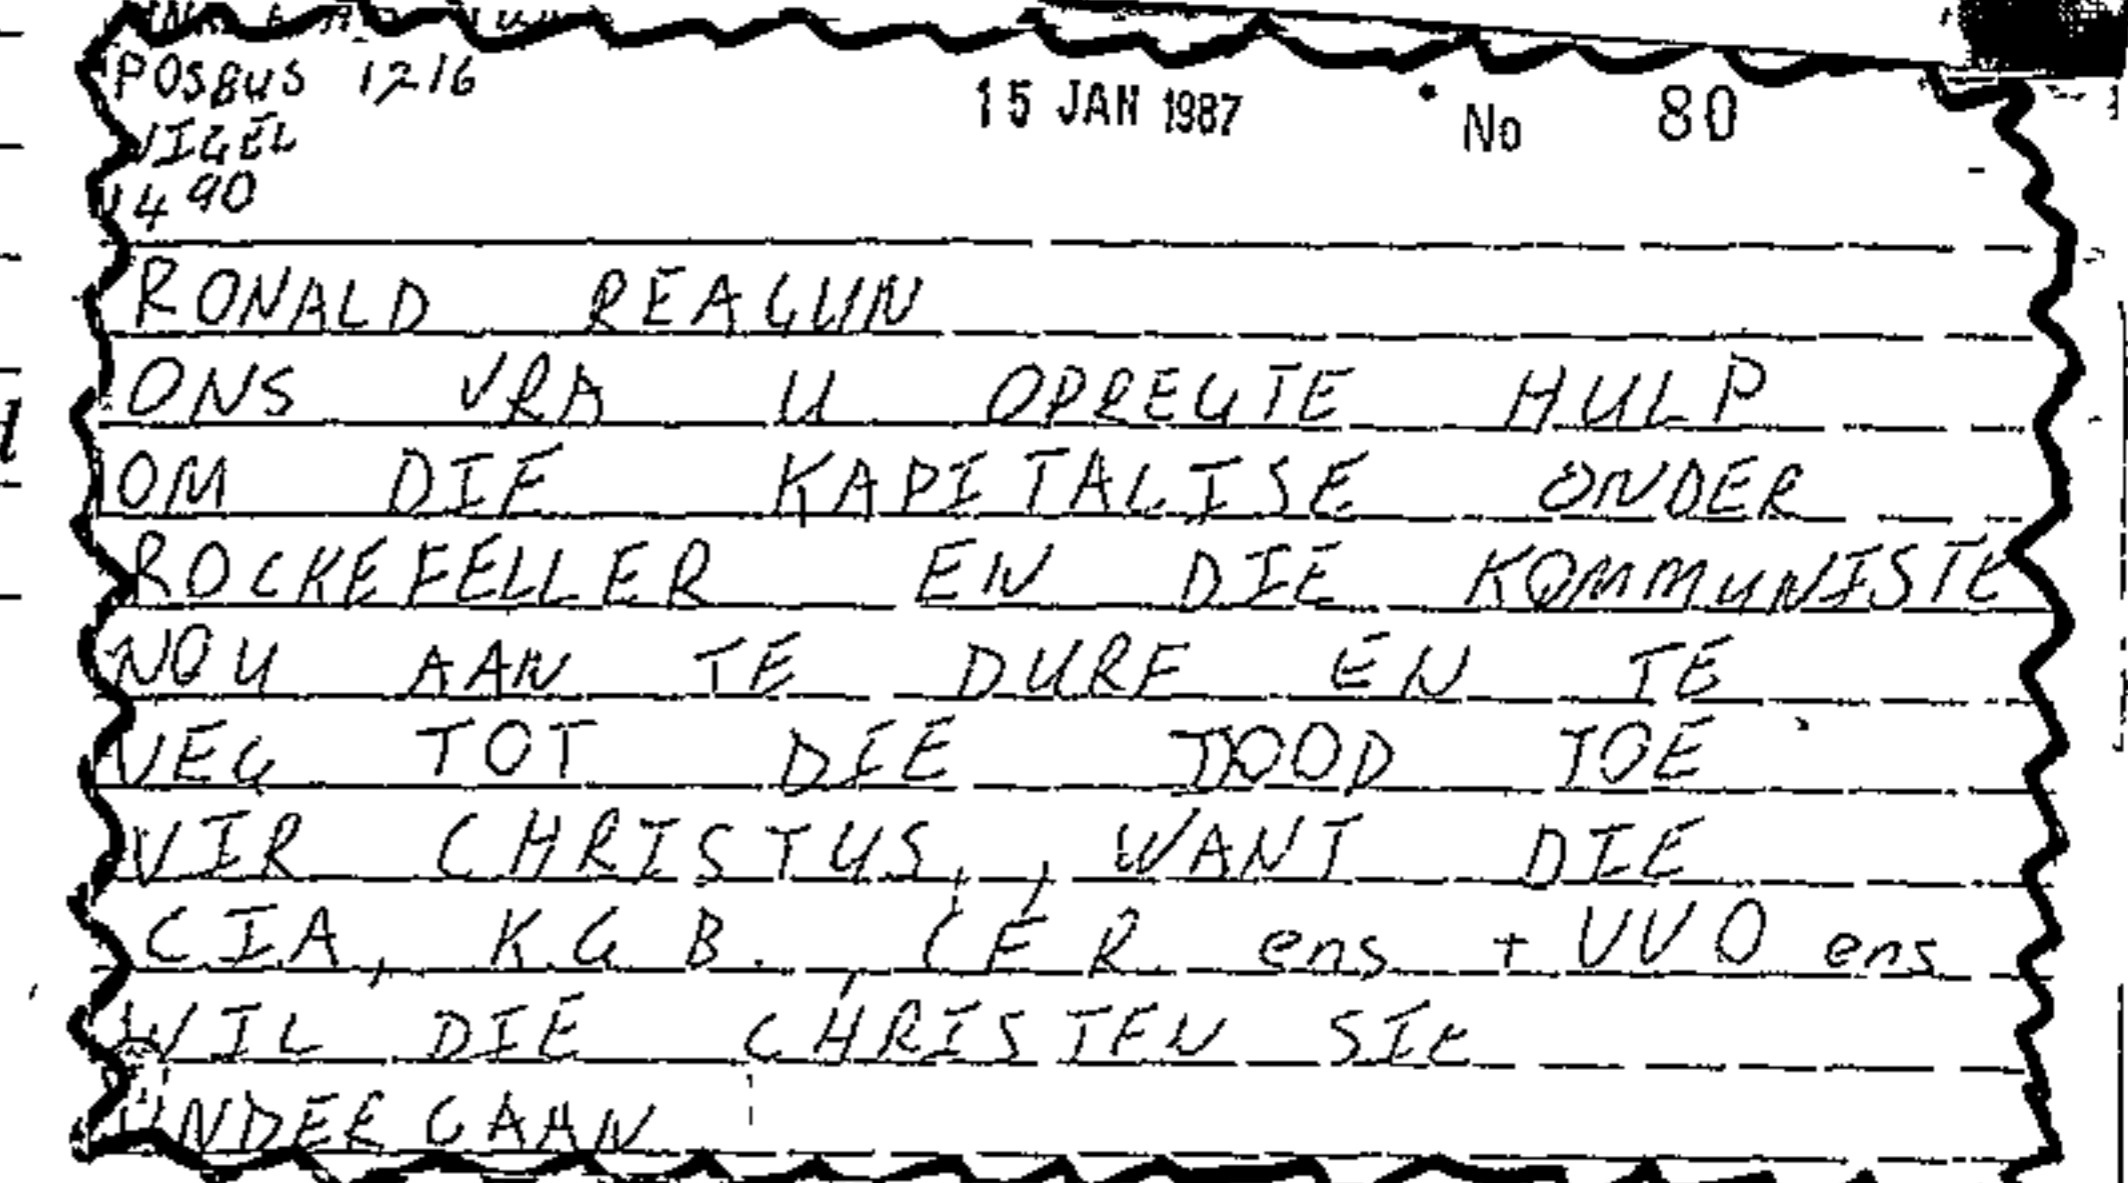 POSBUS 1216
15 JAN 1987 No 80
NIGEL
1490
RONALD REAGUN
ONS VRA U OPREGTE HULP
OM DIE KAPITALISE ONDER
ROCKEFELLER EN DIE KOMMUNISTE
NOU AAN TE DURF EN TE
VEG TOT DIE DOOD TOE
VIR CHRISTUS, WANT DIE
CIA, K.G.B., CFR ens + UVO ens
WIL DIE CHRISTEN SIE
ONDERGAAN